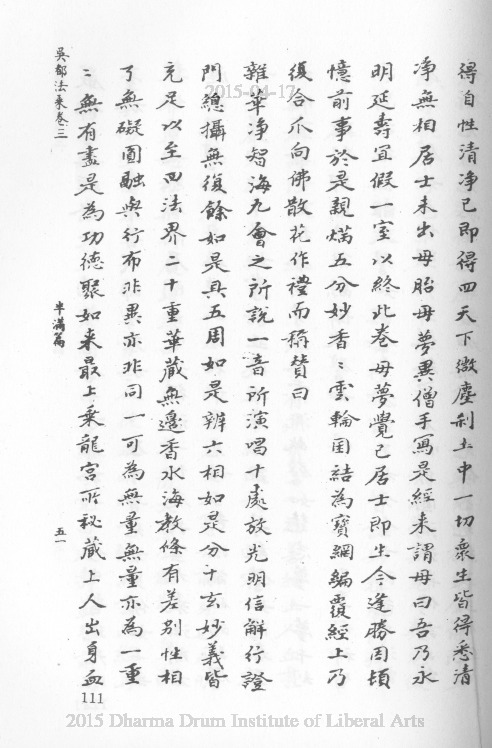 得自性清淨已即得四天下微塵刹土中一切衆生皆得悉清
净無相居士未出母胎母夢異僧手寫是經来謂母曰吾乃永
明延壽宜假一室以終此卷母夢覺已居士即生今逢勝因頓
憶前事於是親爇五分妙香〻雲輪囷結為寶網徧覆經上乃
復合爪向佛散花作禮而稱賛曰
雜華净智海九會之所說一音所演唱十處放光明信解行證
門總攝無復餘如是具五周如是辨六相如是分十玄妙義皆
充足以至四法界二十重華蔵無邊香水海教條有差别性相
了無礙圓融與行布非異亦非同一可為無量無量亦為一重
〻無有盡是為功德聚如来最上乗龍宫所秘蔵上人出身血
吳都法乗卷三
半滿篇
五一
111
2015-04-17
2015 Dharma Drum Institute of Liberal Arts